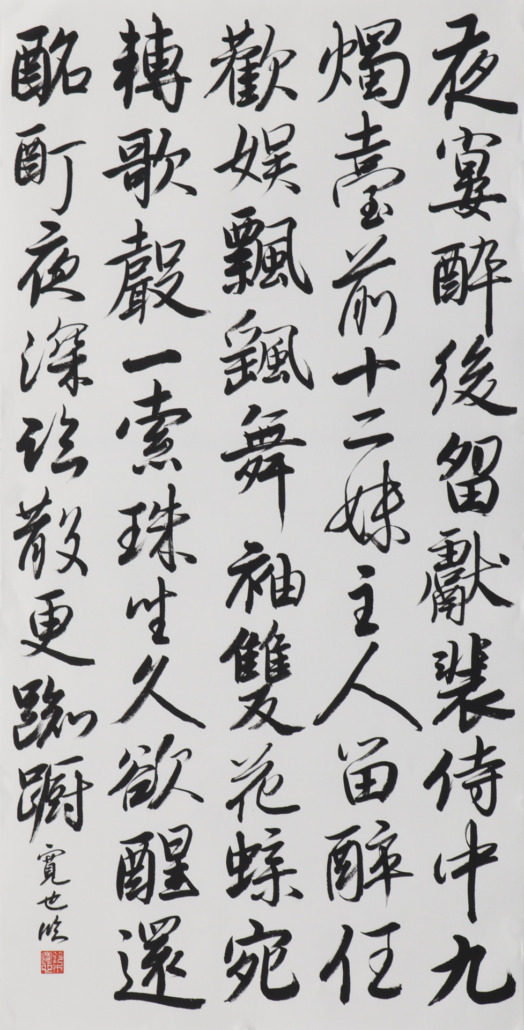 夜宴醉後留獻裴侍中九
燭臺前十二姝主人留醉任
歡娱飄颻舞袖雙花蝶宛
轉歌聲一索珠坐久欲醒還
酩酊夜深臨散更踟蹰
寬也臨